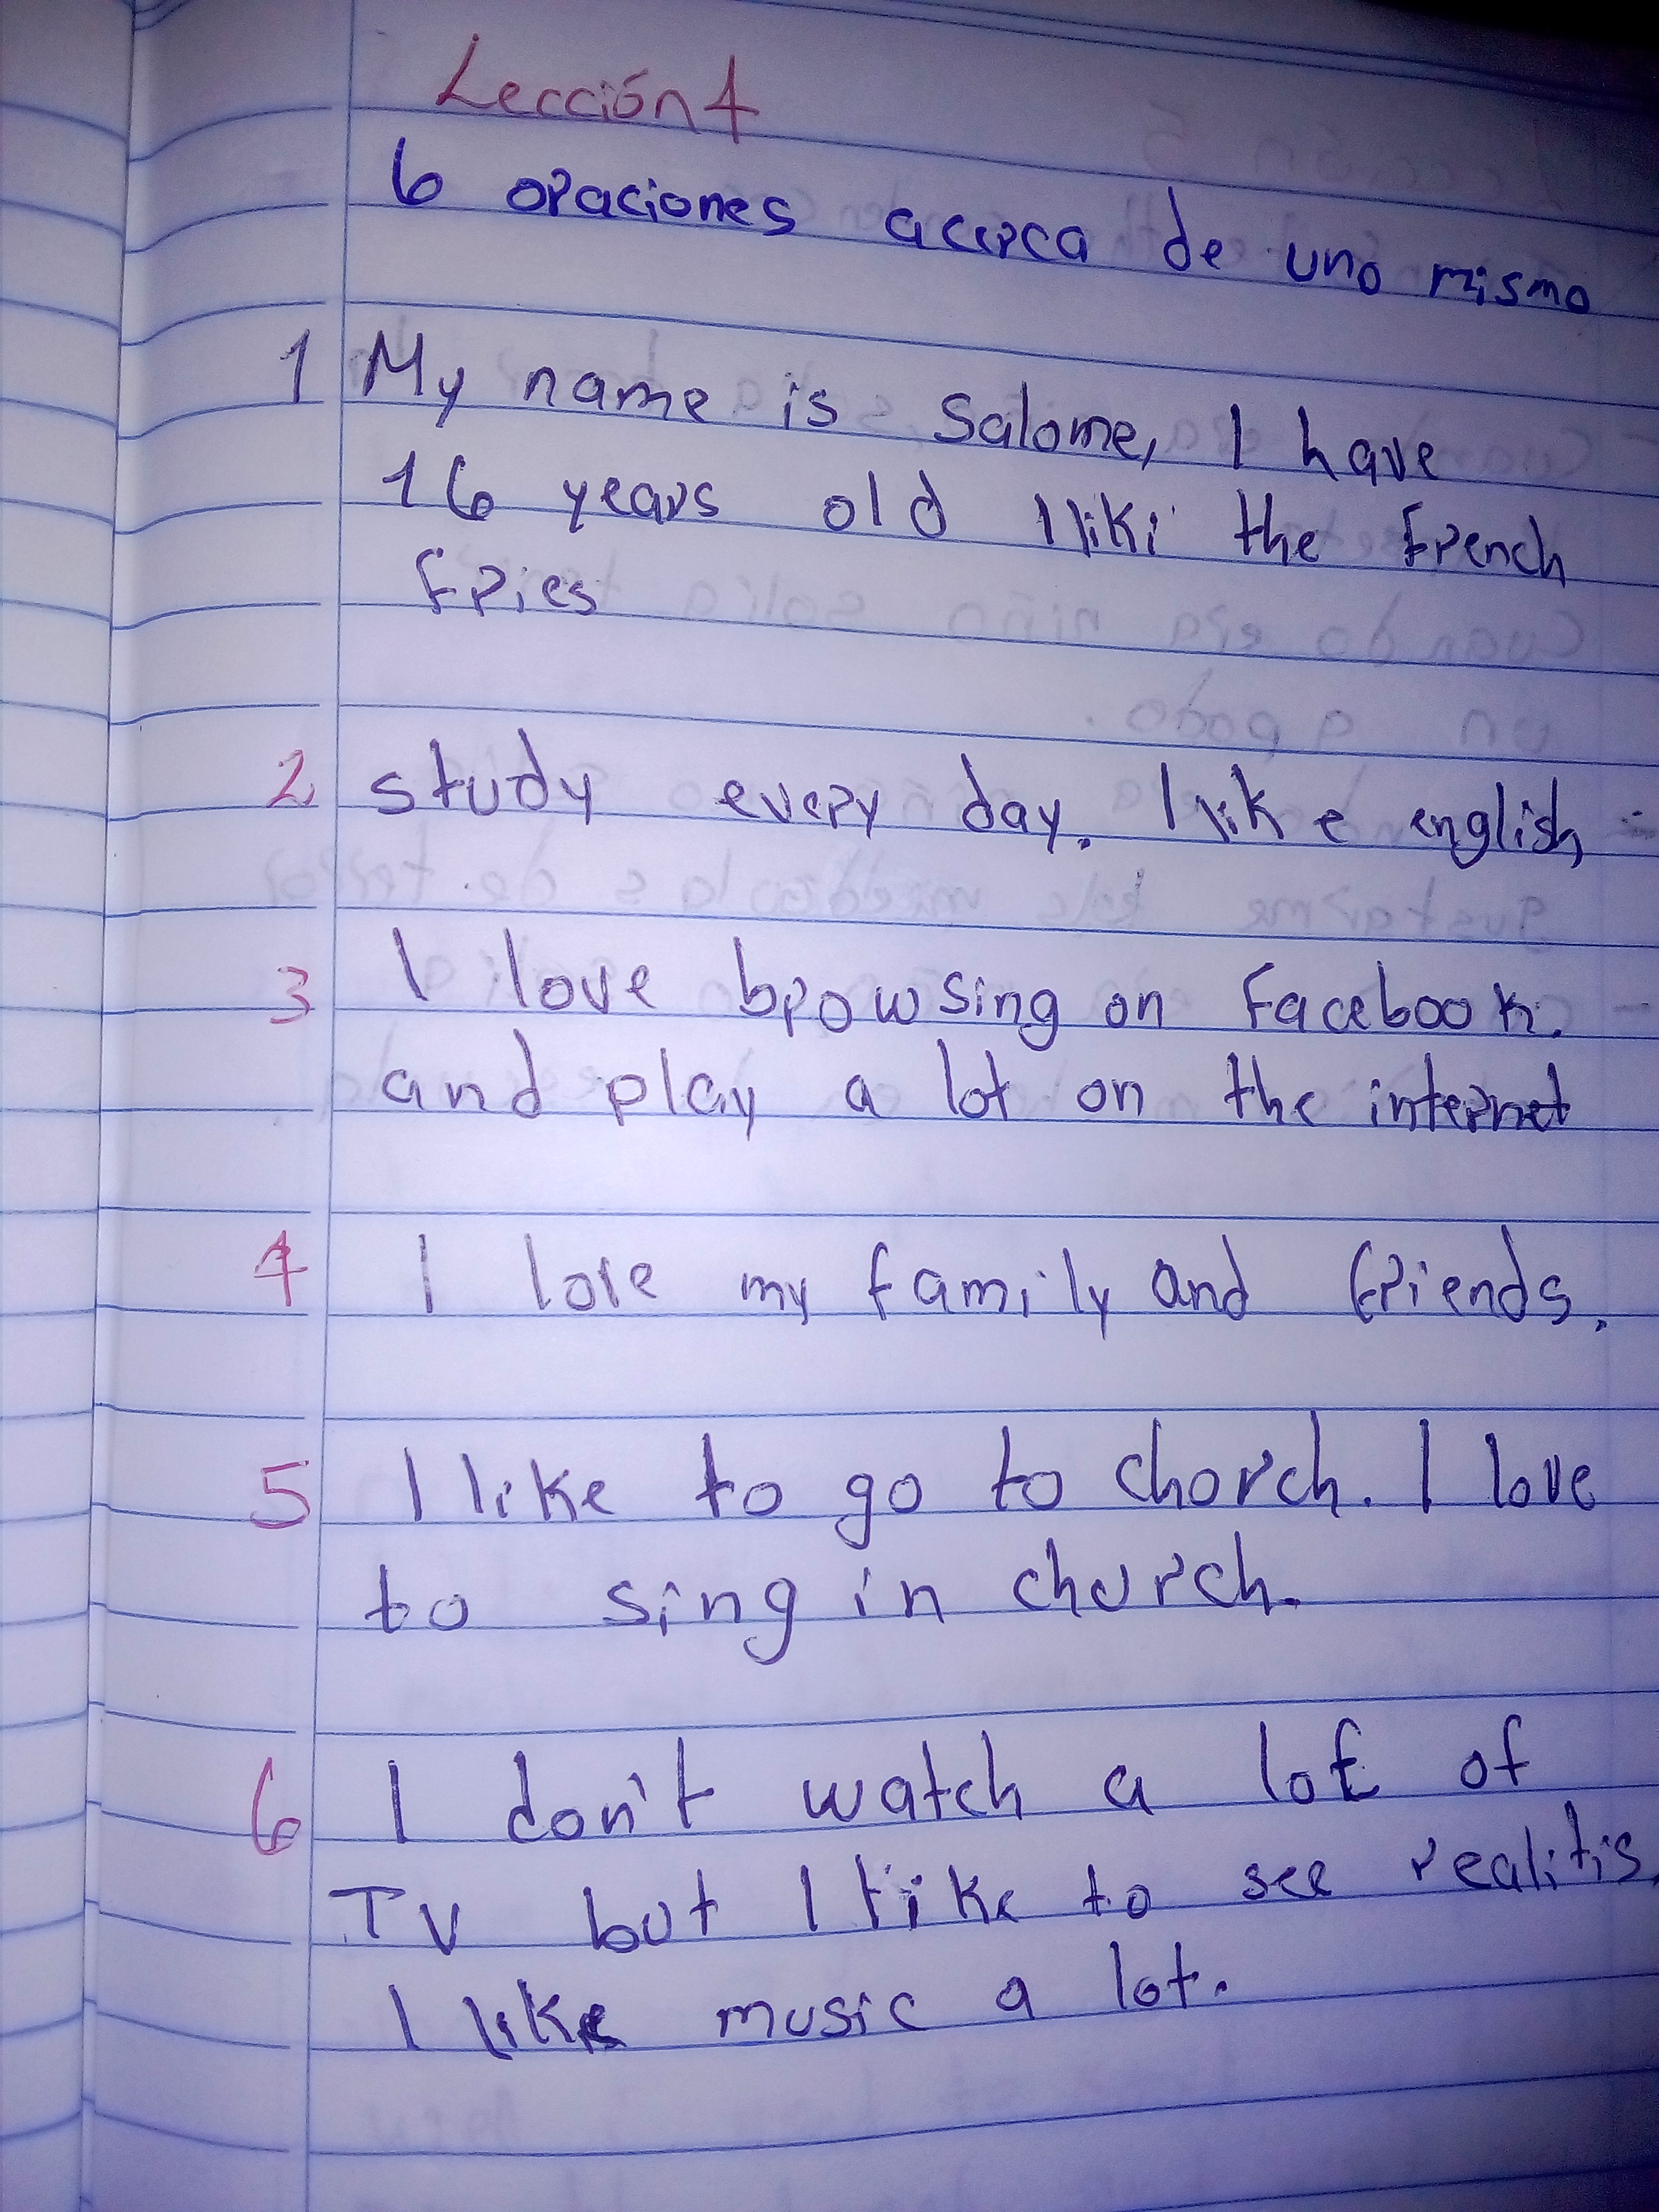 Lección 4
6 oraciones acerca de uno mismo
1 My name is Salome, I have
16 years old I liki the french
fries
2 study every day. I like english
3 I love browsing on Facebook.
and play a lot on the internet
4 I love my family and friends.
5 I like to go to chorch. I love
to sing in church.
6 I don't watch a lot of
TV but I like to see realitis.
I like music a lot.